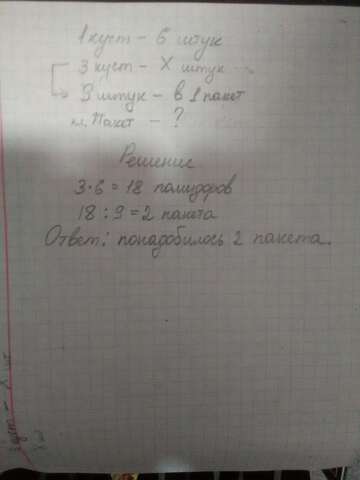 1 куст – 6 штук
3 куст – X штук
9 штук – в 1 пакет
кл. Пакет – ?
Решение
3·6 = 18 помидоров
18 : 9 = 2 пакета
Ответ: понадобилось 2 пакета.